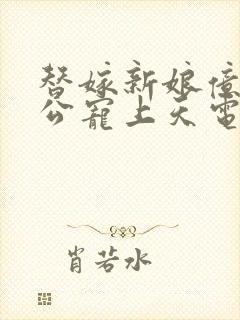 替嫁新娘億
公寵上天電
肖若水